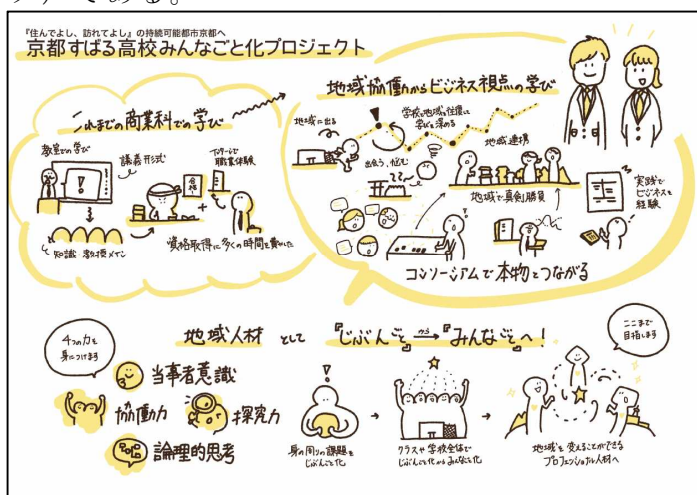 である。
『住んでよし、訪れてよし』の持続可能都市京都へ
京都すばる高校みんなごと化プロジェクト
これまでの商業科での学び
教室での学び
講義形式
インターンで
職業体験
合格!
+
知識 教授メイン
資格取得に多くの時間を費やした
地域協働からビジネス視点の学び
地域に出る
学校と地域を往復して
学びを深める
出会う、悩む
地域連携
地域で真剣勝負
実践で
ビジネスを
経験
コンソーシアムで本物とつながる
4つの力を
身につけます
地域人材 として 『じぶんごと』から『みんなごと』へ!
ここまで
目指します
当事者意識
協働力
探究力
論理的思考
身の周りの課題を
じぶんごと化
クラスや学校全体で
じぶんごと化からみんなごと化
地域を変えることができる
プロフェッショナル人材へ